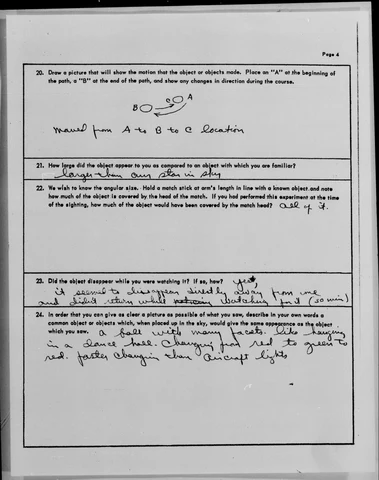 Page 4
20. Draw a picture that will show the motion that the object or objects made. Place an "A" at the beginning of
the path, a "B" at the end of the path, and show any changes in direction during the course.
C A
B
moved from A to B to C location
21. How large did the object appear to you as compared to an object with which you are familiar?
larger than any star in sky
22. We wish to know the angular size. Hold a match stick at arm's length in line with a known object and note
how much of the object is covered by the head of the match. If you had performed this experiment at the time
of the sighting, how much of the object would have been covered by the match head? all of it.
23. Did the object disappear while you were watching it? If so, how? yes,
it seemed to disappear directly away from me
and didn't return while watching for it (30 min)
24. In order that you can give as clear a picture as possible of what you saw, describe in your own words a
common object or objects which, when placed up in the sky, would give the same appearance as the object
which you saw. a ball with many facets like hanging
in a dance hall. Changing from red to green to
red. faster changing than aircraft lights